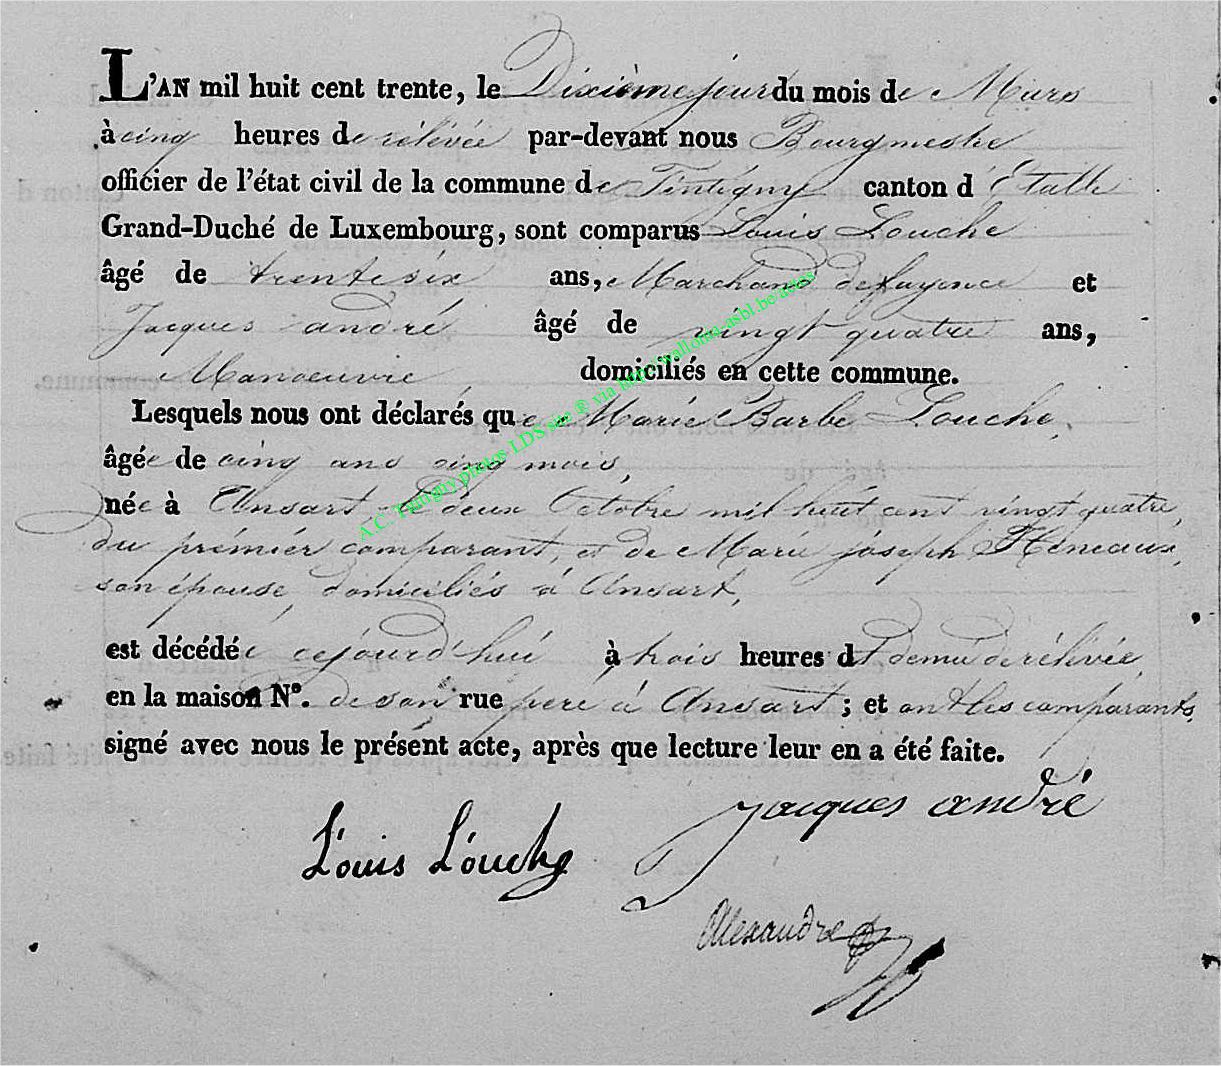 L'AN mil huit cent trente, le Dixième jour du mois de Mars
à cinq heures de rélévée par-devant nous Bourgmestre
officier de l'état civil de la commune de Tintigny canton d'Etalle
Grand-Duché de Luxembourg, sont comparus Louis Louche
âgé de trente six ans, Marchand de fayence et
Jacques andré âgé de vingt quatre ans,
Manoeuvre domiciliés en cette commune.
Lesquels nous ont déclarés que Marie Barbe Louche,
âgée de cinq ans cinq mois,
née à Ansart deux Octobre mil huit cent vingt quatre,
du prémiér comparant, et de Marie joseph
son épouse, domiciliés à Ansart,
est décédée cejourd'hui à trois heures et demie de rélévée,
en la maison N°. de son rue pere à Ansart ; et ont les comparants,
signé avec nous le présent acte, après que lecture leur en a été faite.
Jacques andré
Louis Louche
Alexandre
A.C. Tintigny photos LDS site ® via http://wallonia-asbl.be/actes